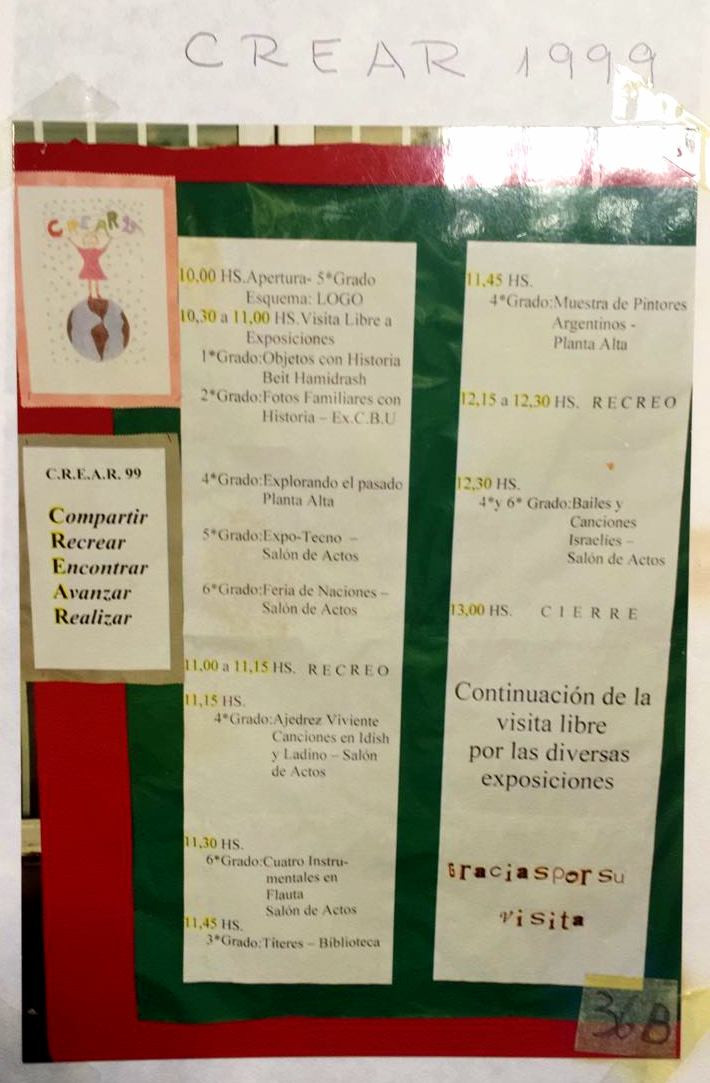 CREAR 1999
CREAR 99
C.R.E.A.R. 99
Compartir
Recrear
Encontrar
Avanzar
Realizar
10,00 HS.Apertura- 5*Grado
Esquema: LOGO
10,30 a 11,00 HS.Visita Libre a
Exposiciones
1*Grado:Objetos con Historia
Beit Hamidrash
2*Grado:Fotos Familiares con
Historia – Ex.C.B.U
4*Grado:Explorando el pasado
Planta Alta
5*Grado:Expo-Tecno –
Salón de Actos
6*Grado:Feria de Naciones –
Salón de Actos
11,00 a 11,15 HS. R E C R E O
11,15 HS.
4*Grado:Ajedrez Viviente
Canciones en Idish
y Ladino – Salón
de Actos
11,30 HS.
6*Grado:Cuatro Instru-
mentales en
Flauta
Salón de Actos
11,45 HS.
3*Grado:Títeres – Biblioteca
11,45 HS.
4*Grado:Muestra de Pintores
Argentinos -
Planta Alta
12,15 a 12,30 HS. R E C R E O
12,30 HS.
4*y 6* Grado:Bailes y
Canciones
Israelíes –
Salón de Actos
13,00 HS. C I E R R E
Continuación de la
visita libre
por las diversas
exposiciones
Gracias por su
visita
36B